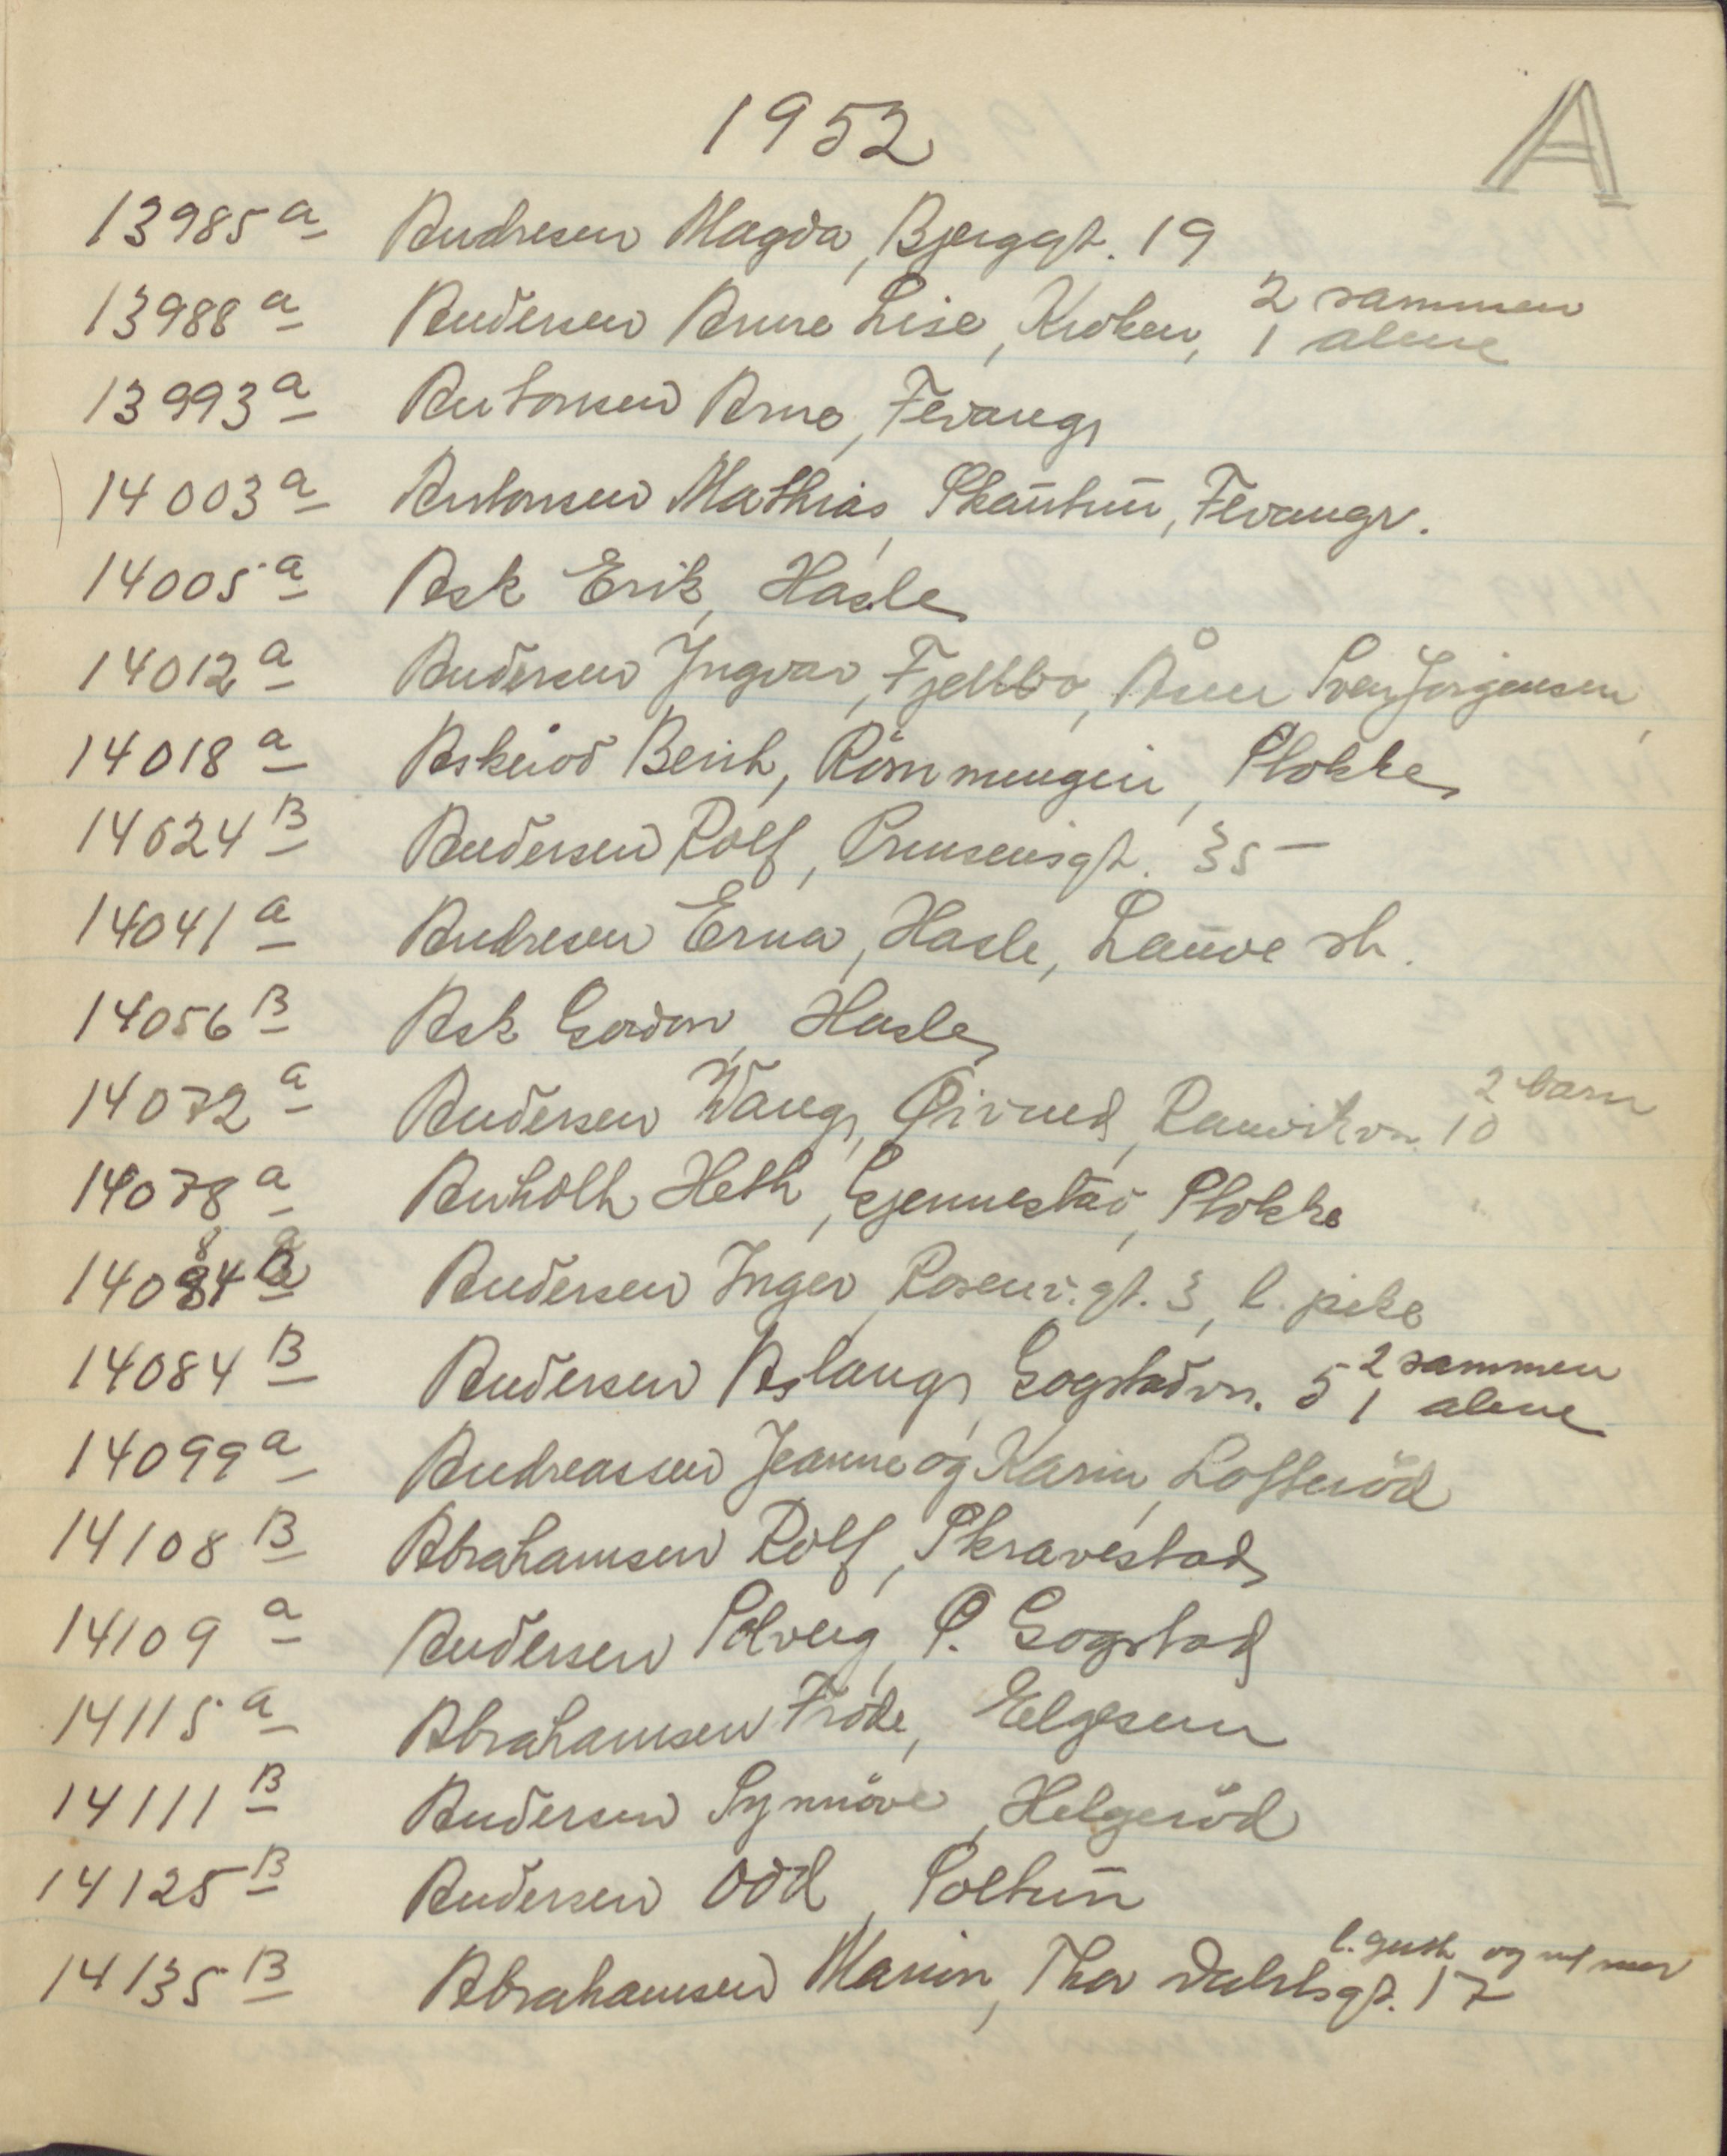 1952
A
13985 a Andresen Magda, Bjerggt. 19
13988 a Andersen Anne Lise, Kroken, 2 sammen
1 alene
13993 a Antonsen Arne, Fevang
14003 a Antonsen Mathias, Skautun, Fevangr.
14005 a Ask Erik, Hasle
14012 a Andersen Ingvar, Fjellbo, Åsen Sven Jørgensen
14018 a Askerød Berit, Rømmingen, Stokke
14024 B Andersen Rolf, 35
14041 a Andresen Erna, Hasle, Lauve st.
14056 B Ask Gordon, Hasle
14072 a Andersen Wang, Øivind, Ranvikvn. 10 2 barn
14078 a Anholt Heth, Gjennestad, Stokke
14084 a Andersen Inger, Rosenv.gt. 3, l. pike
14084 B Andersen Aslaug, Gogstadvn. 5 2 sammen
1 alene
14099 a Andreassen Jeanne og Karin, Lofterød
14108 B Abrahamsen Rolf, Skravestad
14109 a Andersen Solveig, Ø. Gogstad
14115 a Abrahamsen Frode, Elgesem
14111 B Andersen Synnöve, Helgeröd
14125 B Andersen Odd, Soltun
14135 B Abrahamsen Marion, Thor Dahlsgt. 17 l. gutt og m/ mor